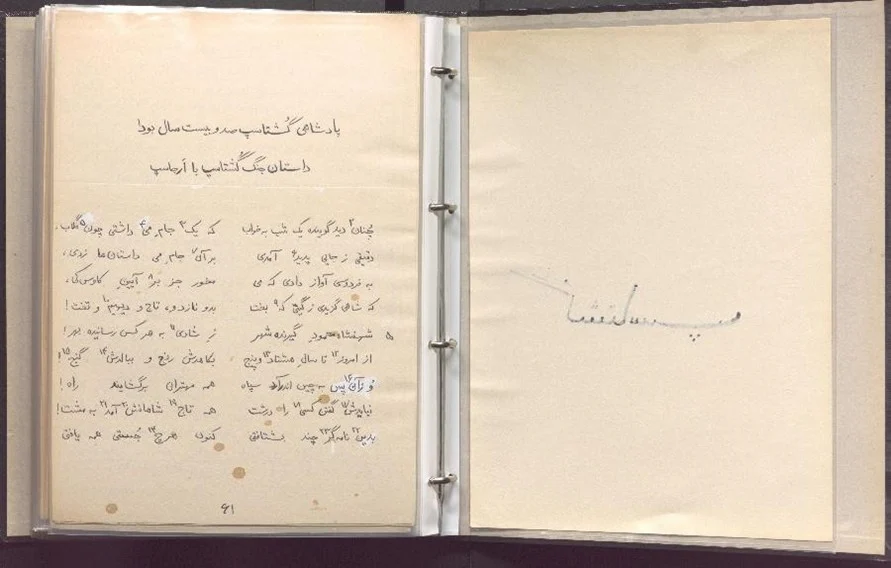 پادشاهی گُشتاسپ صد و بیست سال بود!
داستان جنگ گُشتاسپ با اَرجاسپ
چُنان۲ دید گوینده یک شب به خواب که یک۳ جام می۴ داشتی چون۵ گلاب،
دقیقی ز جایی پدید۶ آمدی بر آن۷ جام می داستان‌ها زدی،
به فردوسی آواز دادی که می مخور جز بر۸ آیین کاوس کی،
که شاهی گزیدی ز گیتی که۹ بخت بدو نازد و، تاج و دیهیم۱۰ و تخت!
۵ شهنشاه محمود گیرنده شهر ز شادی۱۱ به هر کس رسانیده بهر!
از امروز۱۲ تا سال هشتاد۱۳ و پنج بکاهدش رنج و ببالدش۱۴ گنج۱۵!
وُ زآن۱۶ پس به چین اندر آرد سپاه همه مهتران برگشایند راه!
نبایدش۱۷ گفتن کسی۱۸ را درشت همه تاج۱۹ شاهانش۲۰ آمد۲۱ به مشت!
بدین۲۲ نامه گر۲۳ چند بشتافتی کنون هرچ۲۴ جُستی همه یافتی
۶۱